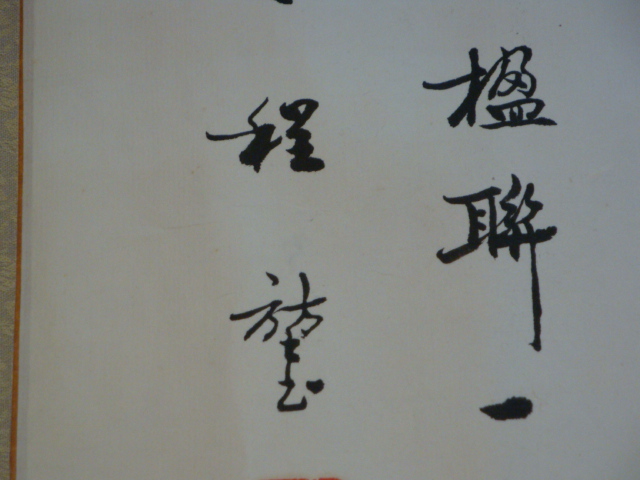 楹聯一
程